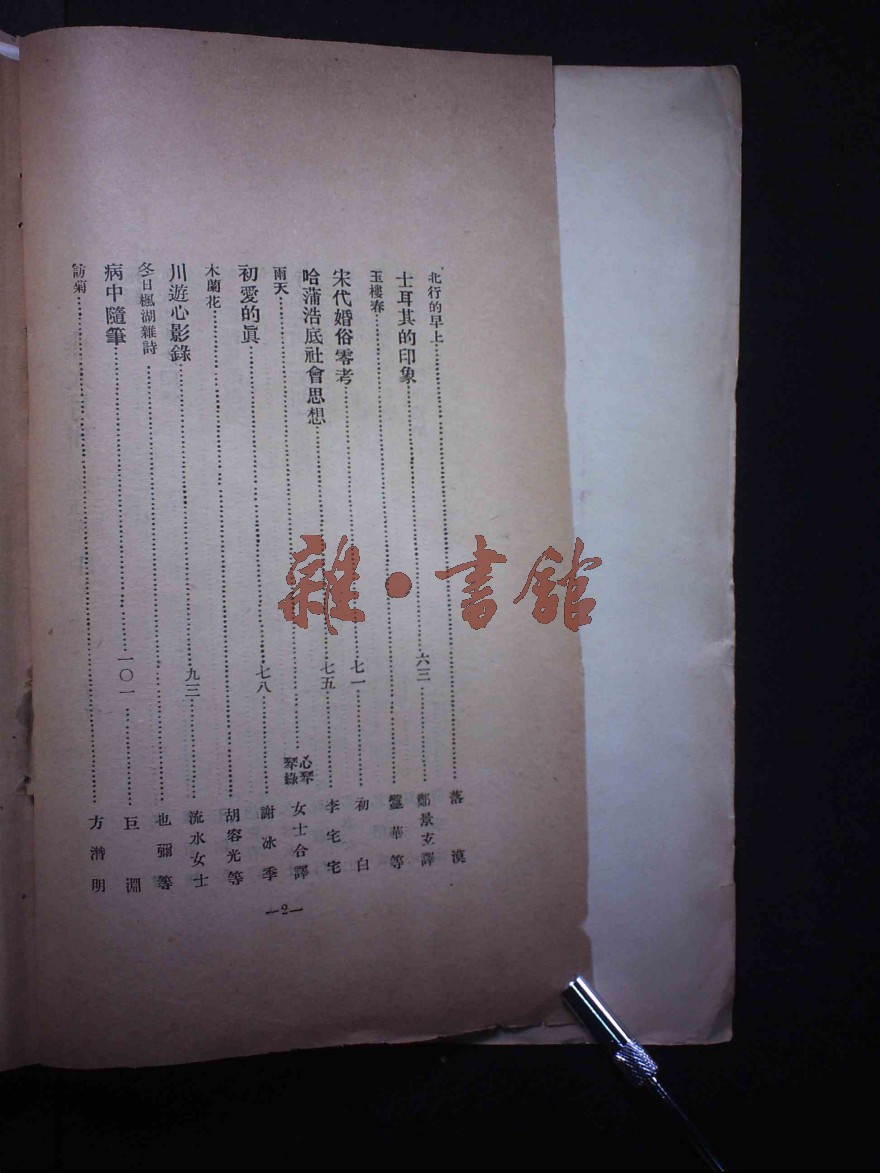 北行的早上……落漠
土耳其的印象……六三……鄭景芝譯
玉樓春……靈華等
宋代婚俗零考……七一……初白
哈蒲浩底社會思想……七五……李宅宅
雨天……心琴琴綠女士合譯
初愛的眞……七八……謝冰季
木蘭花……胡容光等
川遊心影錄……九三……流水女士
冬日楓湖雜詩……也彌等
病中隨筆……一〇一……巨淵
訪菊……方潛明
—2—
雜·書館